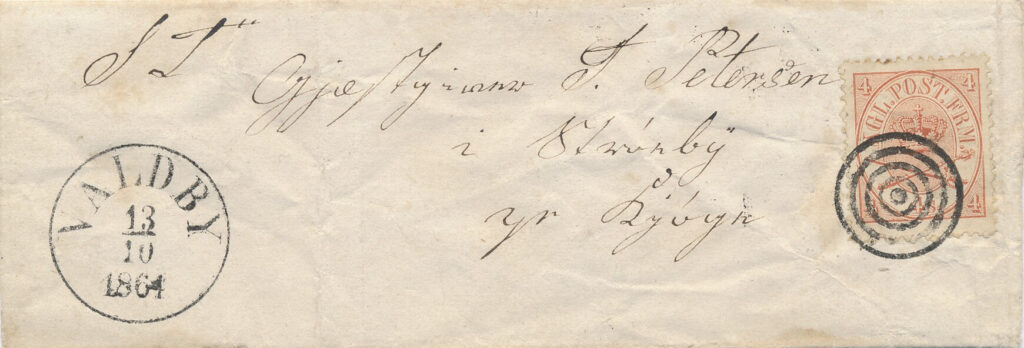 S T
Gjæstgiver F. Petersen
i Strøby
pr Kjöge
4 KGL. POST. FRM. 4
4
VALDBY
13
10
1864